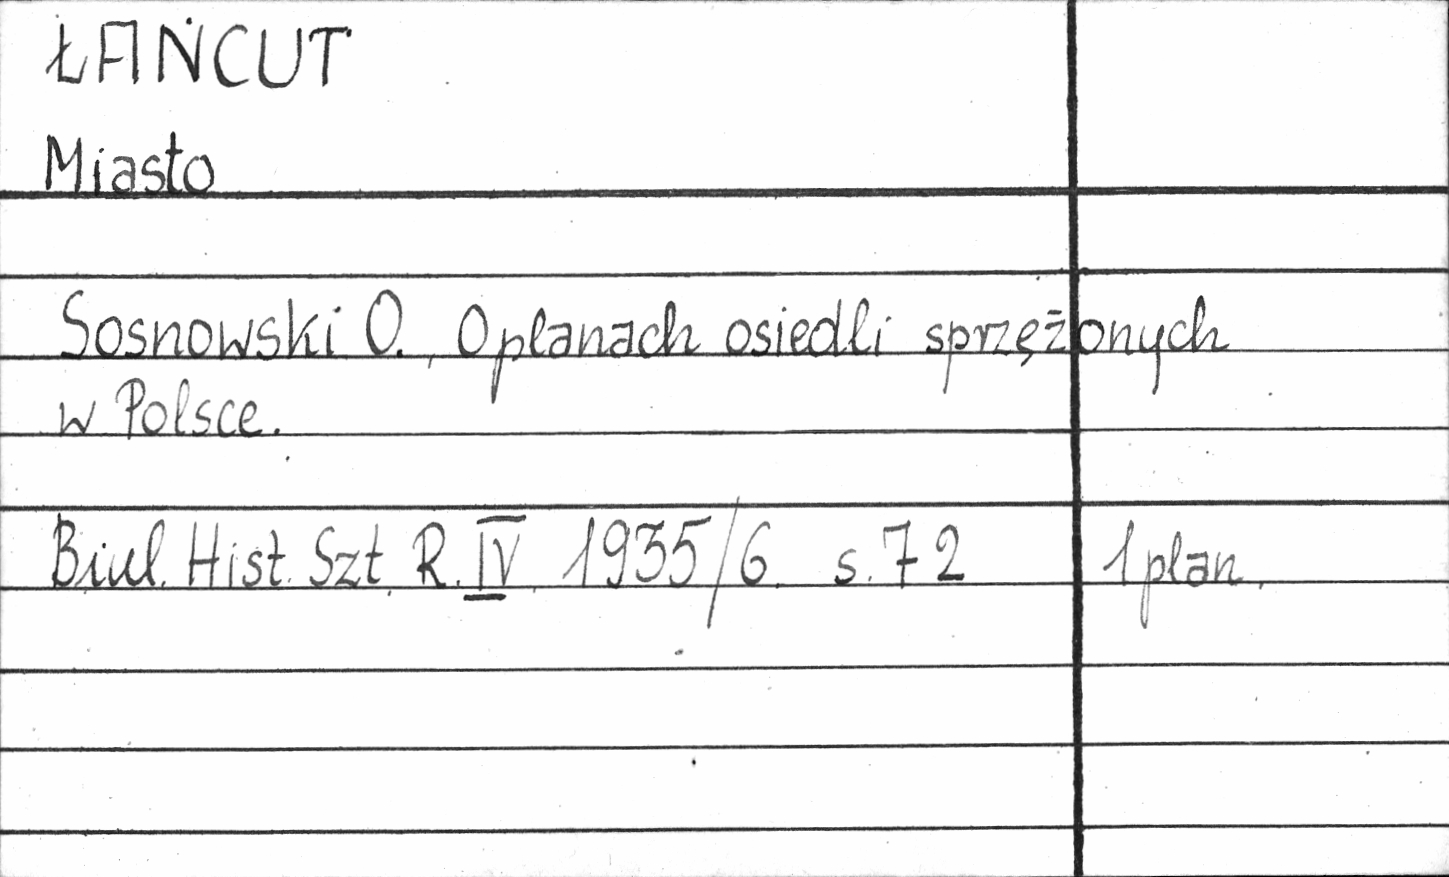 ŁAŃCUT
Miasto
Sosnowski O., O planach osiedli sprzężonych
w Polsce.
Biul. Hist. Szt. R. IV. 1935/6. s. 72 1 plan.